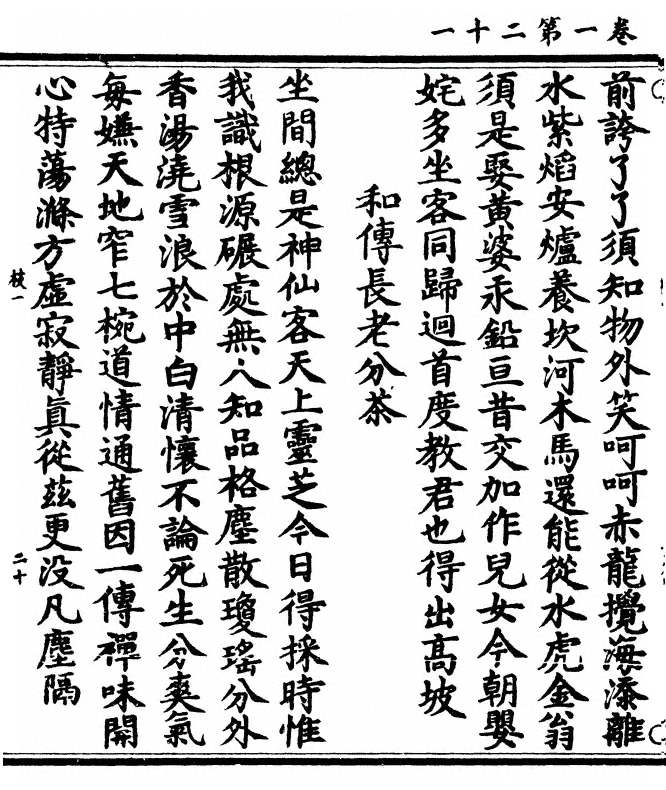 卷一第二十一
前誇了了須知物外笑呵呵赤龍攪海添離
水紫熖安爐養坎河木馬還能從水虎金翁
須是娶黃婆汞鉛亘昔交加作兒女今朝嬰
姹多坐客同歸迴首度教君也得出高坡
和傳長老分茶
坐間總是神仙客天上靈芝今日得採時惟
我識根源碾處無人知品格塵散瓊瑤分外
香湯澆雪浪於中白清懷不論死生分爽氣
每嫌天地窄七椀道情通舊因一傳禪味開
心特蕩滌方虛寂靜真從茲更没凡塵隔
枝一
二十